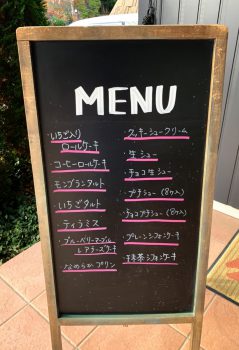 MENU
・いちご入り
ロールケーキ
・コーヒーロールケーキ
・モンブランタルト
・いちごタルト
・ティラミス
・ブルーベリーマーブル
レアチーズケーキ
・なめらかプリン
・クッキーシュークリーム
・生シュー
・チョコ生シュー
・プチシュー(8ヶ入)
・チョコプチシュー(8ヶ入)
・プレーンシフォンケーキ
・抹茶シフォンケーキ